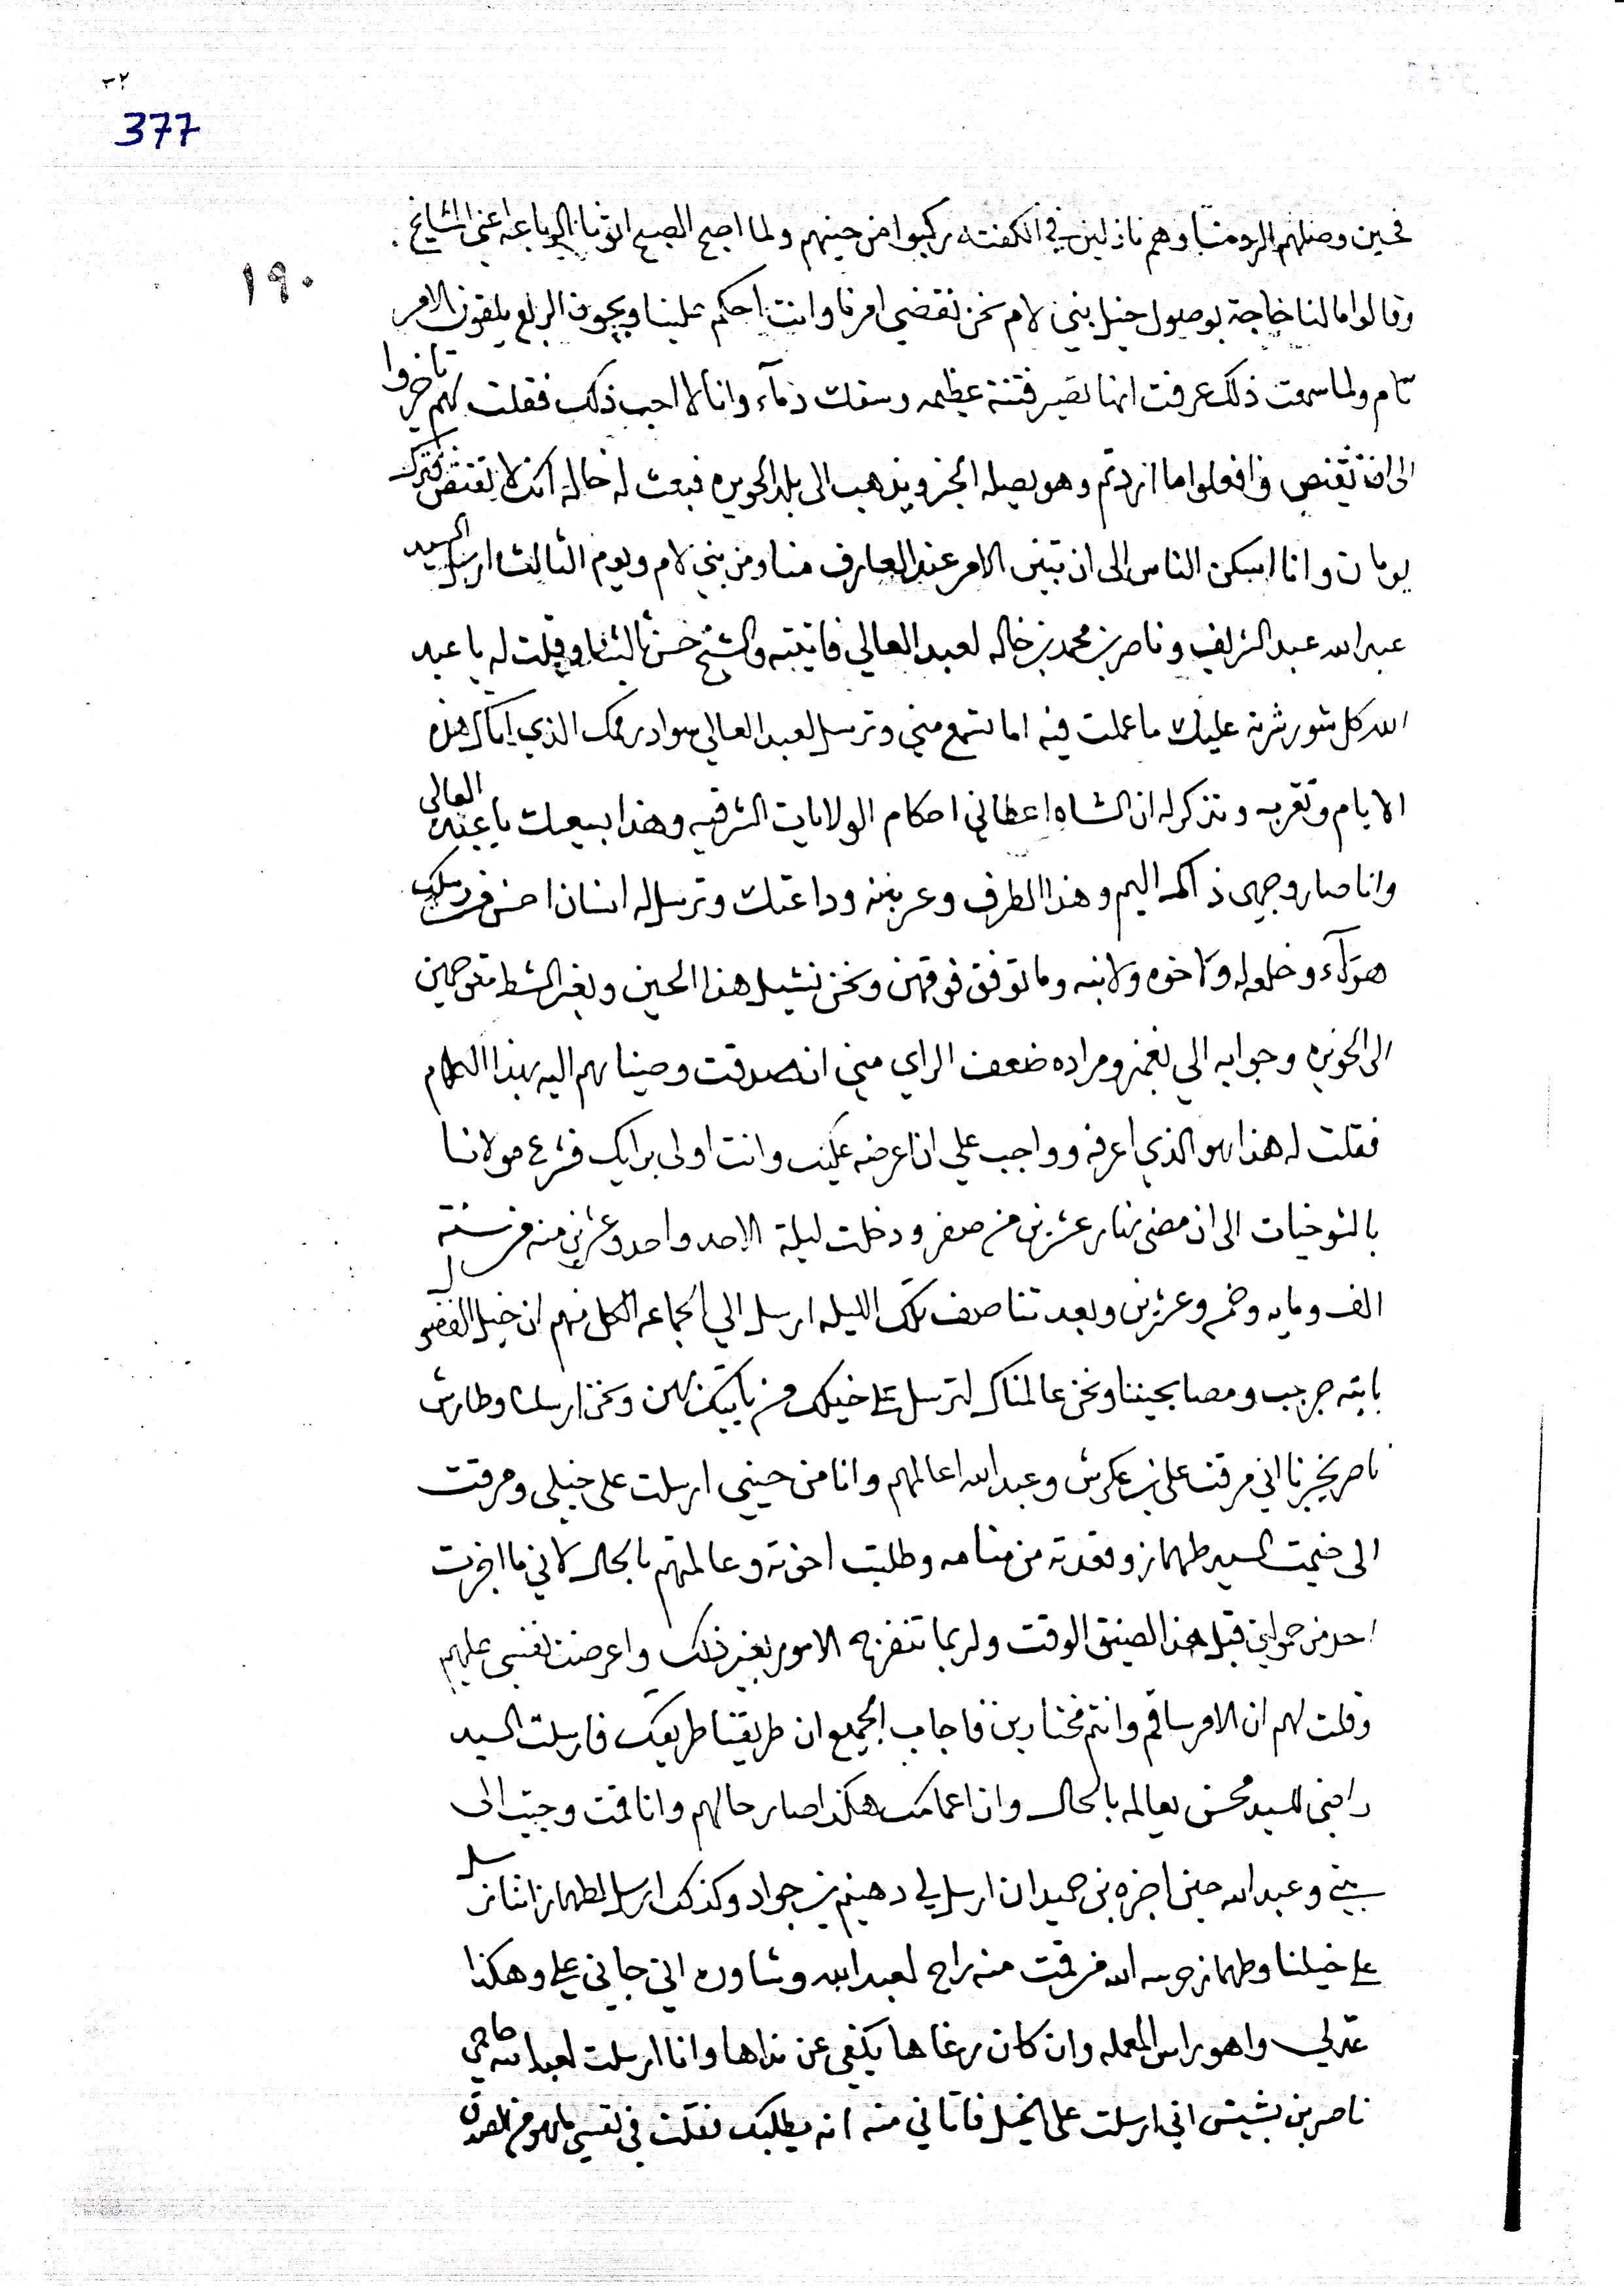 377
١٩٠
فحين وصلهم الرد منا وهم نازلين في الكفته ركبوا من حينهم ولما اصبح الصبح اتونا الرباعه اعني المشايخ
وقالوا ما لنا حاجة بوصول خيل بني لام نحن نقضي امرنا وانت احكم علينا ويجون الربع يلقون الامر
تام ولما سمعت ذلك عرفت انها تصير فتنة عظيمه وسفك دمآء وانا لا احب ذلك فقلت لهم تاخروا
الى ان تقنص وافعلوا ما اردتم وهو يصله الخبر ويذهب الى بلد الحويزه فبعث له خاله انك لا تقنص فترك
يومان وانا اسكن الناس الى ان تبين الامر عند العارف منا ومن بني لام ويوم الثالث ارسل السيد
عبد الله عبد الشريف وناصر بن محمد بن خاله لعبد العالي فاتيته والشيخ حسن ثالثنا وقلت له يا عبد
الله كل شور شرته عليك ما عملت فيه اما تسمع مني وترسل لعبد العالي سواد رقمك الذي اتاك هذه
الايام وتقربه وتذكر له ان الشاه اعطاني احكام الولايات الشرقيه وهذا بسعيك يا عبد العالي
وانا صار وجهي ذاكه اليم وهذا الطرف وعربنه وداعتك وترسل له انسان احسن من رسلك
هؤلآء وخلعه له ولاخوه ولابنه وما توفق فوقهن ونحن نشيل هذا الحين ونعبر الشط متوجهين
الى الحويزه وجوابه الي نعم ومراده ضعف الراي مني ان صدقت وصينا لهم اليه بهذا الكلام
فقلت له هذا هو الذي اعرفه وواجب علي ان اعرضه عليك وانت اولى برايك فشرع مولانا
بالشوخيات الى ان مضى نهار عشرين من صفر ودخلت ليلة الاحد واحد وعشرين منه من سنة
الف ومايه وخمس وعشرين وبعد تناصف تلك الليله ارسل الي الجماعه الكل منهم ان خيل الفضول
بايته جريب ومصابحيننا ونحن عالمناك لترسل على خيلك من ياتيك بهن ونحن ارسلنا وطارش
ناصر يخبرنا اني مرقت على بن عكرش وعبد الله اعالمهم وانا من حيني ارسلت على خيلي ومرقت
الى خيمت السيد طهماز وقعدته من منامه وطلبت اخوته وعالمتهم بالحال لاني ما اخبرت
احد من حمولتي قبل هذا لضيق الوقت ولربما تنفزه الامور بغير ذلك واعرضت نفسي عليهم
وقلت لهم ان الامر ساقم وانتم مختارين فاجاب الجميع ان طريقنا طريقك فارسلت السيد
راضي للسيد محسن يعالمه بالحال وان اعمامك هكذا صار حالهم وانا قمت وجيت الى
بيتي وعبد الله حين اخبره بني حميدان ارسل لي دهيم بن جواد وكذلك ارسل لطهماز اننا نرسل
على خيلنا وطهماز حرسه الله من قمت منه راح لعبد الله وشاوره اني جاني علي وهكذا
عد لي واهو راس المعمله وان كان رغاها يكفي عن نداها وانا ارسلت لعبد الله
ناصر بن بشيتس اني ارسلت على الخيل فاتاني منه انه يطلبك فقلت في نفسي